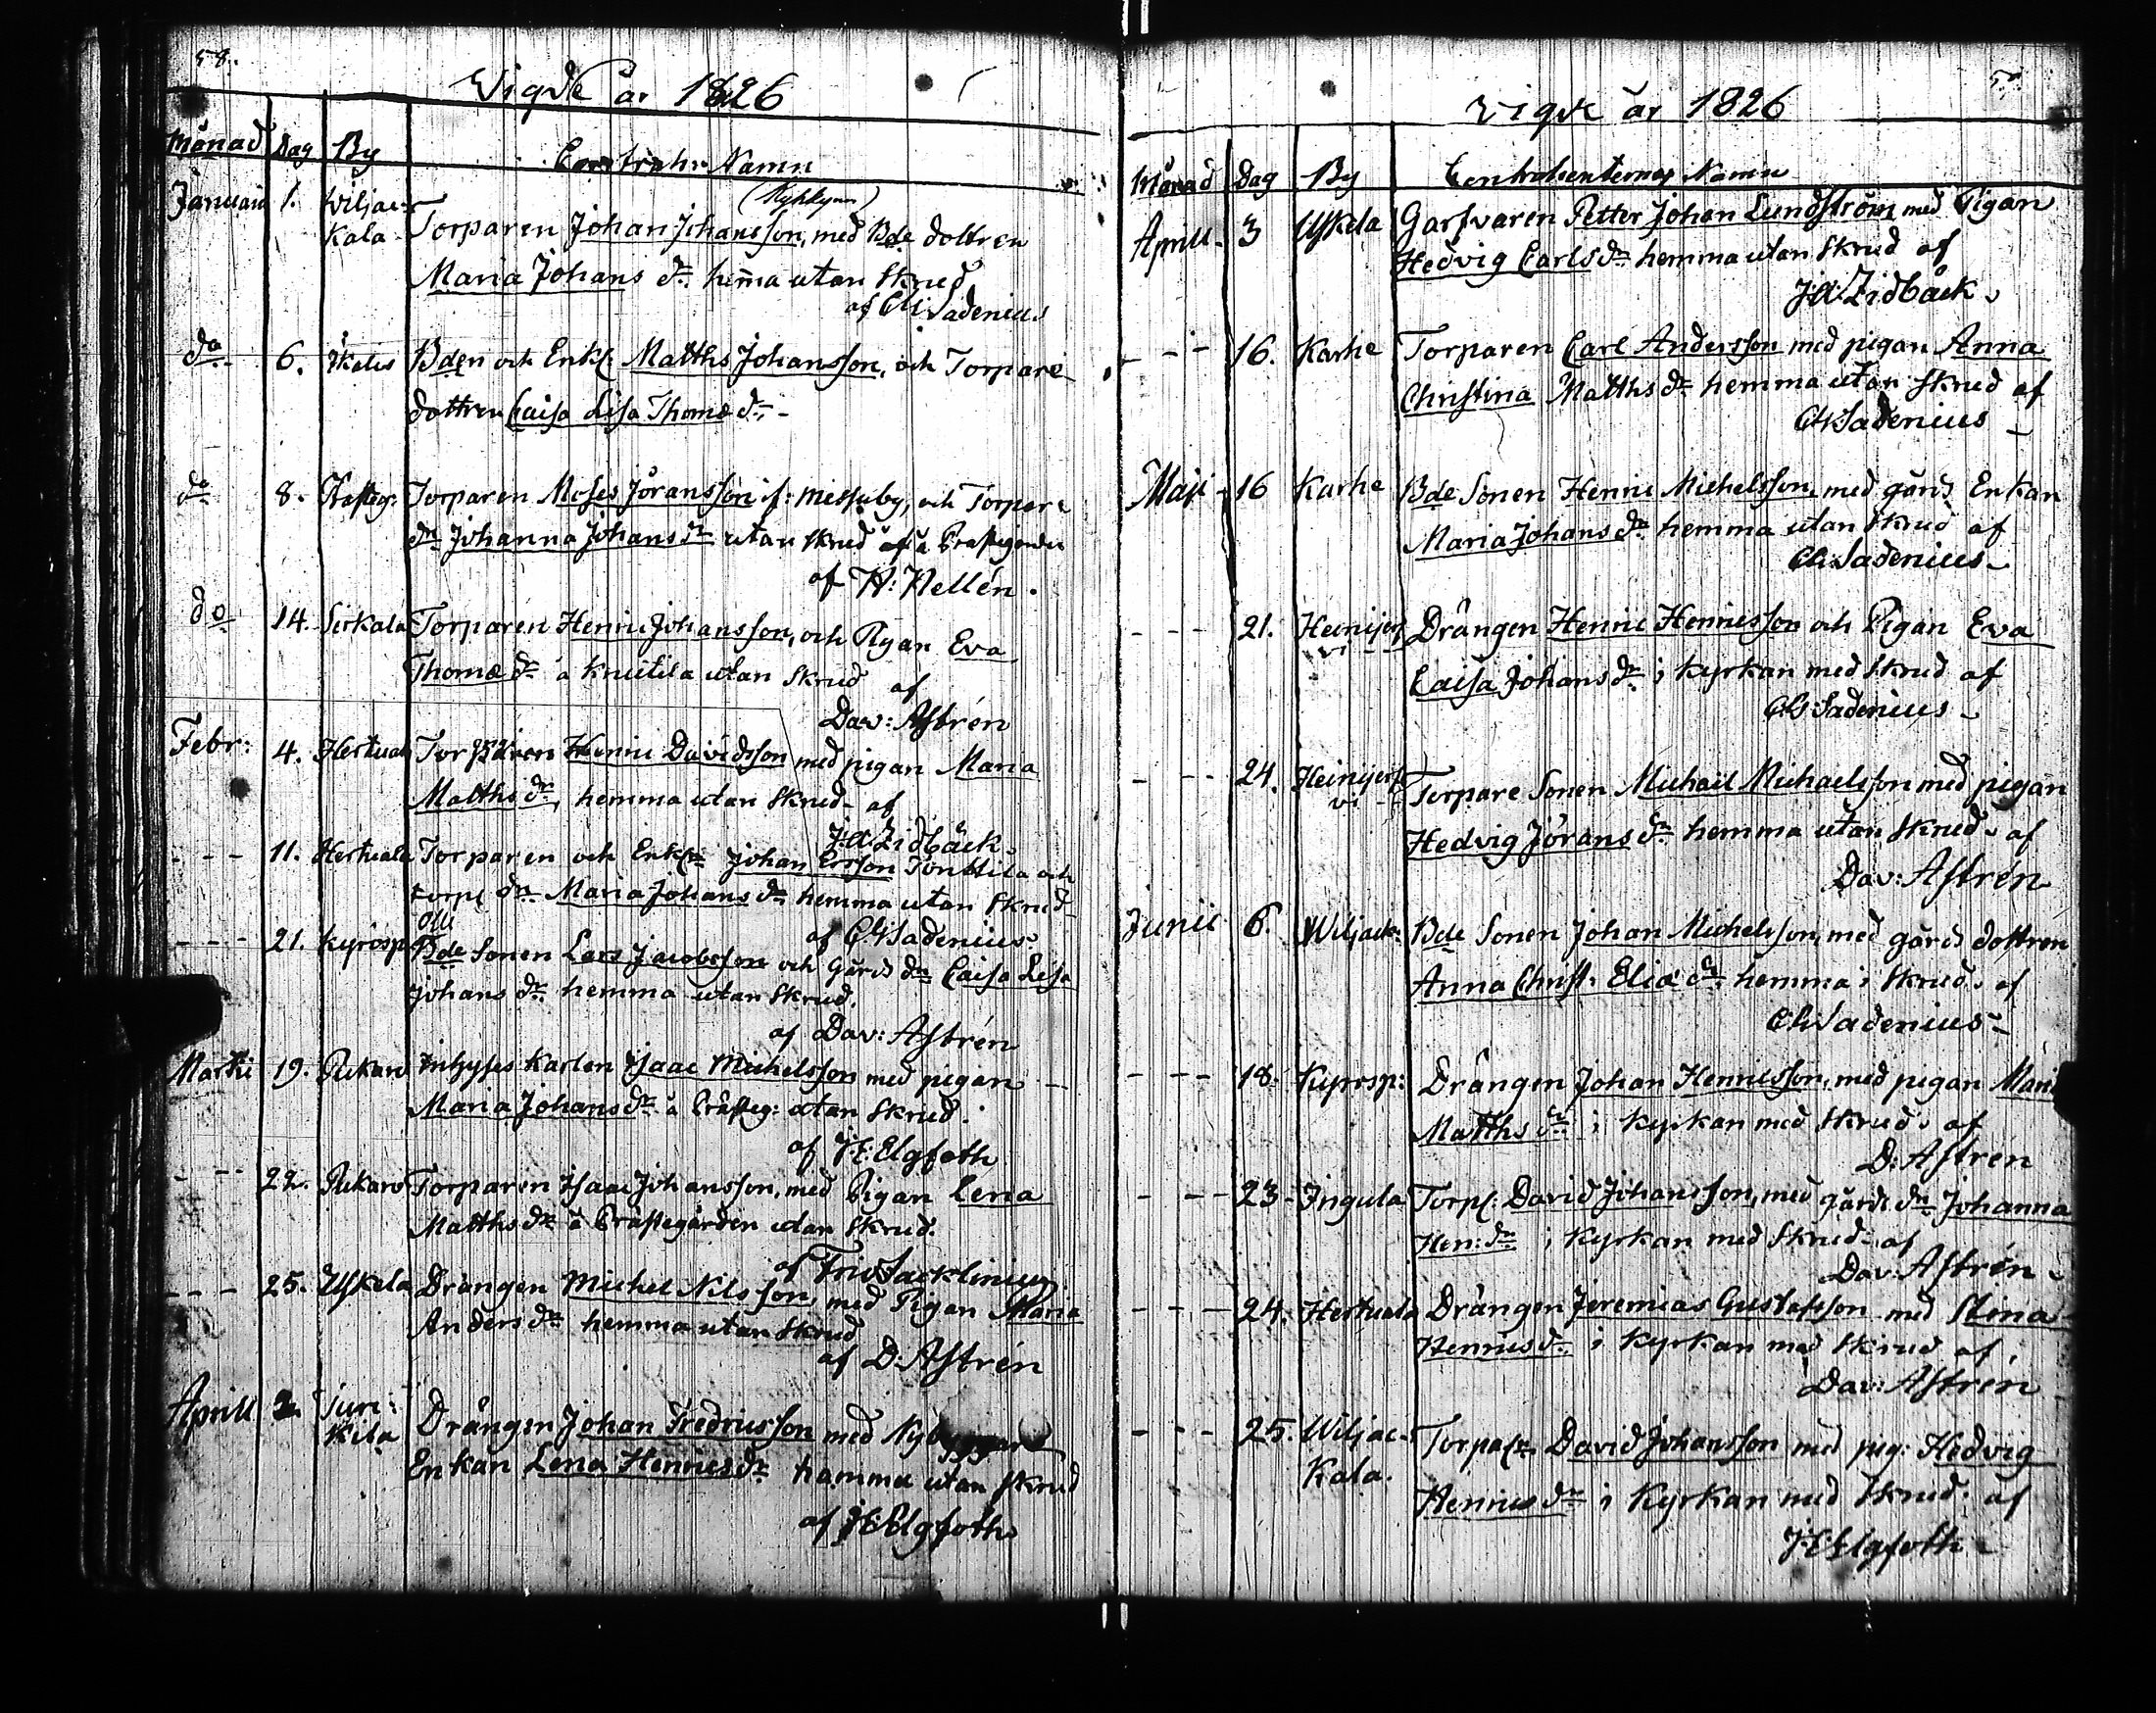 58.
Vigde år 1826
Månad Dag By Contrah: Namn
Januarii 1. Wiljac- (Kyhkynen)
kala Torparen Johan Johansson, med Bde dottren
Maria Johans dr. hem̃a utan Skrud
af CG: Sadenius
do 6. Bden och Enkl. Matths Johansson, och Torpare
dottren Caisa Lisa Thomæ dr. -
do 8. Torparen Moses Jöransson i f: Messuby, och Torpare
dr Johanna Johans dr utan Skrud å Præstgården
af H: Hellén.
do 14. Sirkala Torparen Henric Johansson, och Pigan Eva
Thomæ dr å Knuutila utan Skrud af
Dav: Astrén
Febr: 4. Hertuala Torparen Henric Davidsson med pigan Maria
Matths dr, hemma utan Skrud - af
J:A: Zidbäck.
- - - 11. Hertuala Torparen och Enkl. Johan Ersson Tonttila och
torp. dr. Maria Johans dr hemma utan Skrud
af CG Sadenius.
- - - 21. Kyrösp. Bde Sonen Lars Jacobsson och Gårds dr Caisa Lisa
Johans dr. hemma utan Skrud.
af Dav: Astrén
Martii 19. Inhyses Karlen Isaac Michelsson med pigan
Maria Johans dr. å Præsteg: utan Skrud.
af J:E: Elgfoth
- - - 22. Torparen Isaac Johansson, med Pigan Lena
Matths dr å Prästegården utan Skrud.
af
- - - 25. Uskela Drängen Michel Nilsson, med Pigan Maria
Anders dr hemma utan Skrud
af D. Astrén
Aprill 2. Turi-
kila Drängen Johan Fredricsson med Nybyggare
Enkan Lena Henrics dr hemma utan Skrud
af J:E Elgfoth
Vigde år 1826
Månad Dag By Contrahenternas Namn
Aprill 3 Uskela Garfvaren Petter Johan Lundström med Pigan
Hedvig Carls dr hemma utan Skrud af
J:A: Zidbäck.
- - - 16. Karhe Torparen Carl Andersson med pigan Anna
Christina Matths dr hemma utan Skrud af
CG Sadenius -
Maji 16 Karhe Bde Sonen Henric Michelsson, med gårds Enkan
Maria Johans dr. hemma utan Skrud af
CG: Sadenius -
- - - 21. Heinijerf-
vi Drängen Henric Henricsson och Pigan Eva
Caisa Johans dr. i Kyrkan med Skrud af
CG: Sadenius -
- - - 24. Heinijerf-
vi Torpare Sonen Michael Michaelsson med pigan
Hedvig Jörans dr hemma utan Skrud af
Dav: Astrén
Junii 6. Wiljack: Bde Sonen Johan Michelsson, med gårds dottren
Anna Christ. Eliæ dr. hemma i Skrud. af
CG Sadenius -
- - - 18. Kyrösp: Drängen Johan Henricsson, med pigan Maria
Matths dr. i Kyrkan med Skrud. af
D: Astrén
- - - 23 - Jngula Torp. David Johansson, med gårds dr Johanna
Hen: dr i Kyrkan med Skrud - af
Dav: Astrén -
- - - 24. Hertuala Drängen Jeremias Gustafsson med Stina
Henrics dr. i Kyrkan med Skrud af
Dav: Astrén
- - - 25. Wiljac-
kala. David Johansson med pig: Hedvig
Henrics dr i Kyrkan med Skrud: af
J:E Elgfoth -